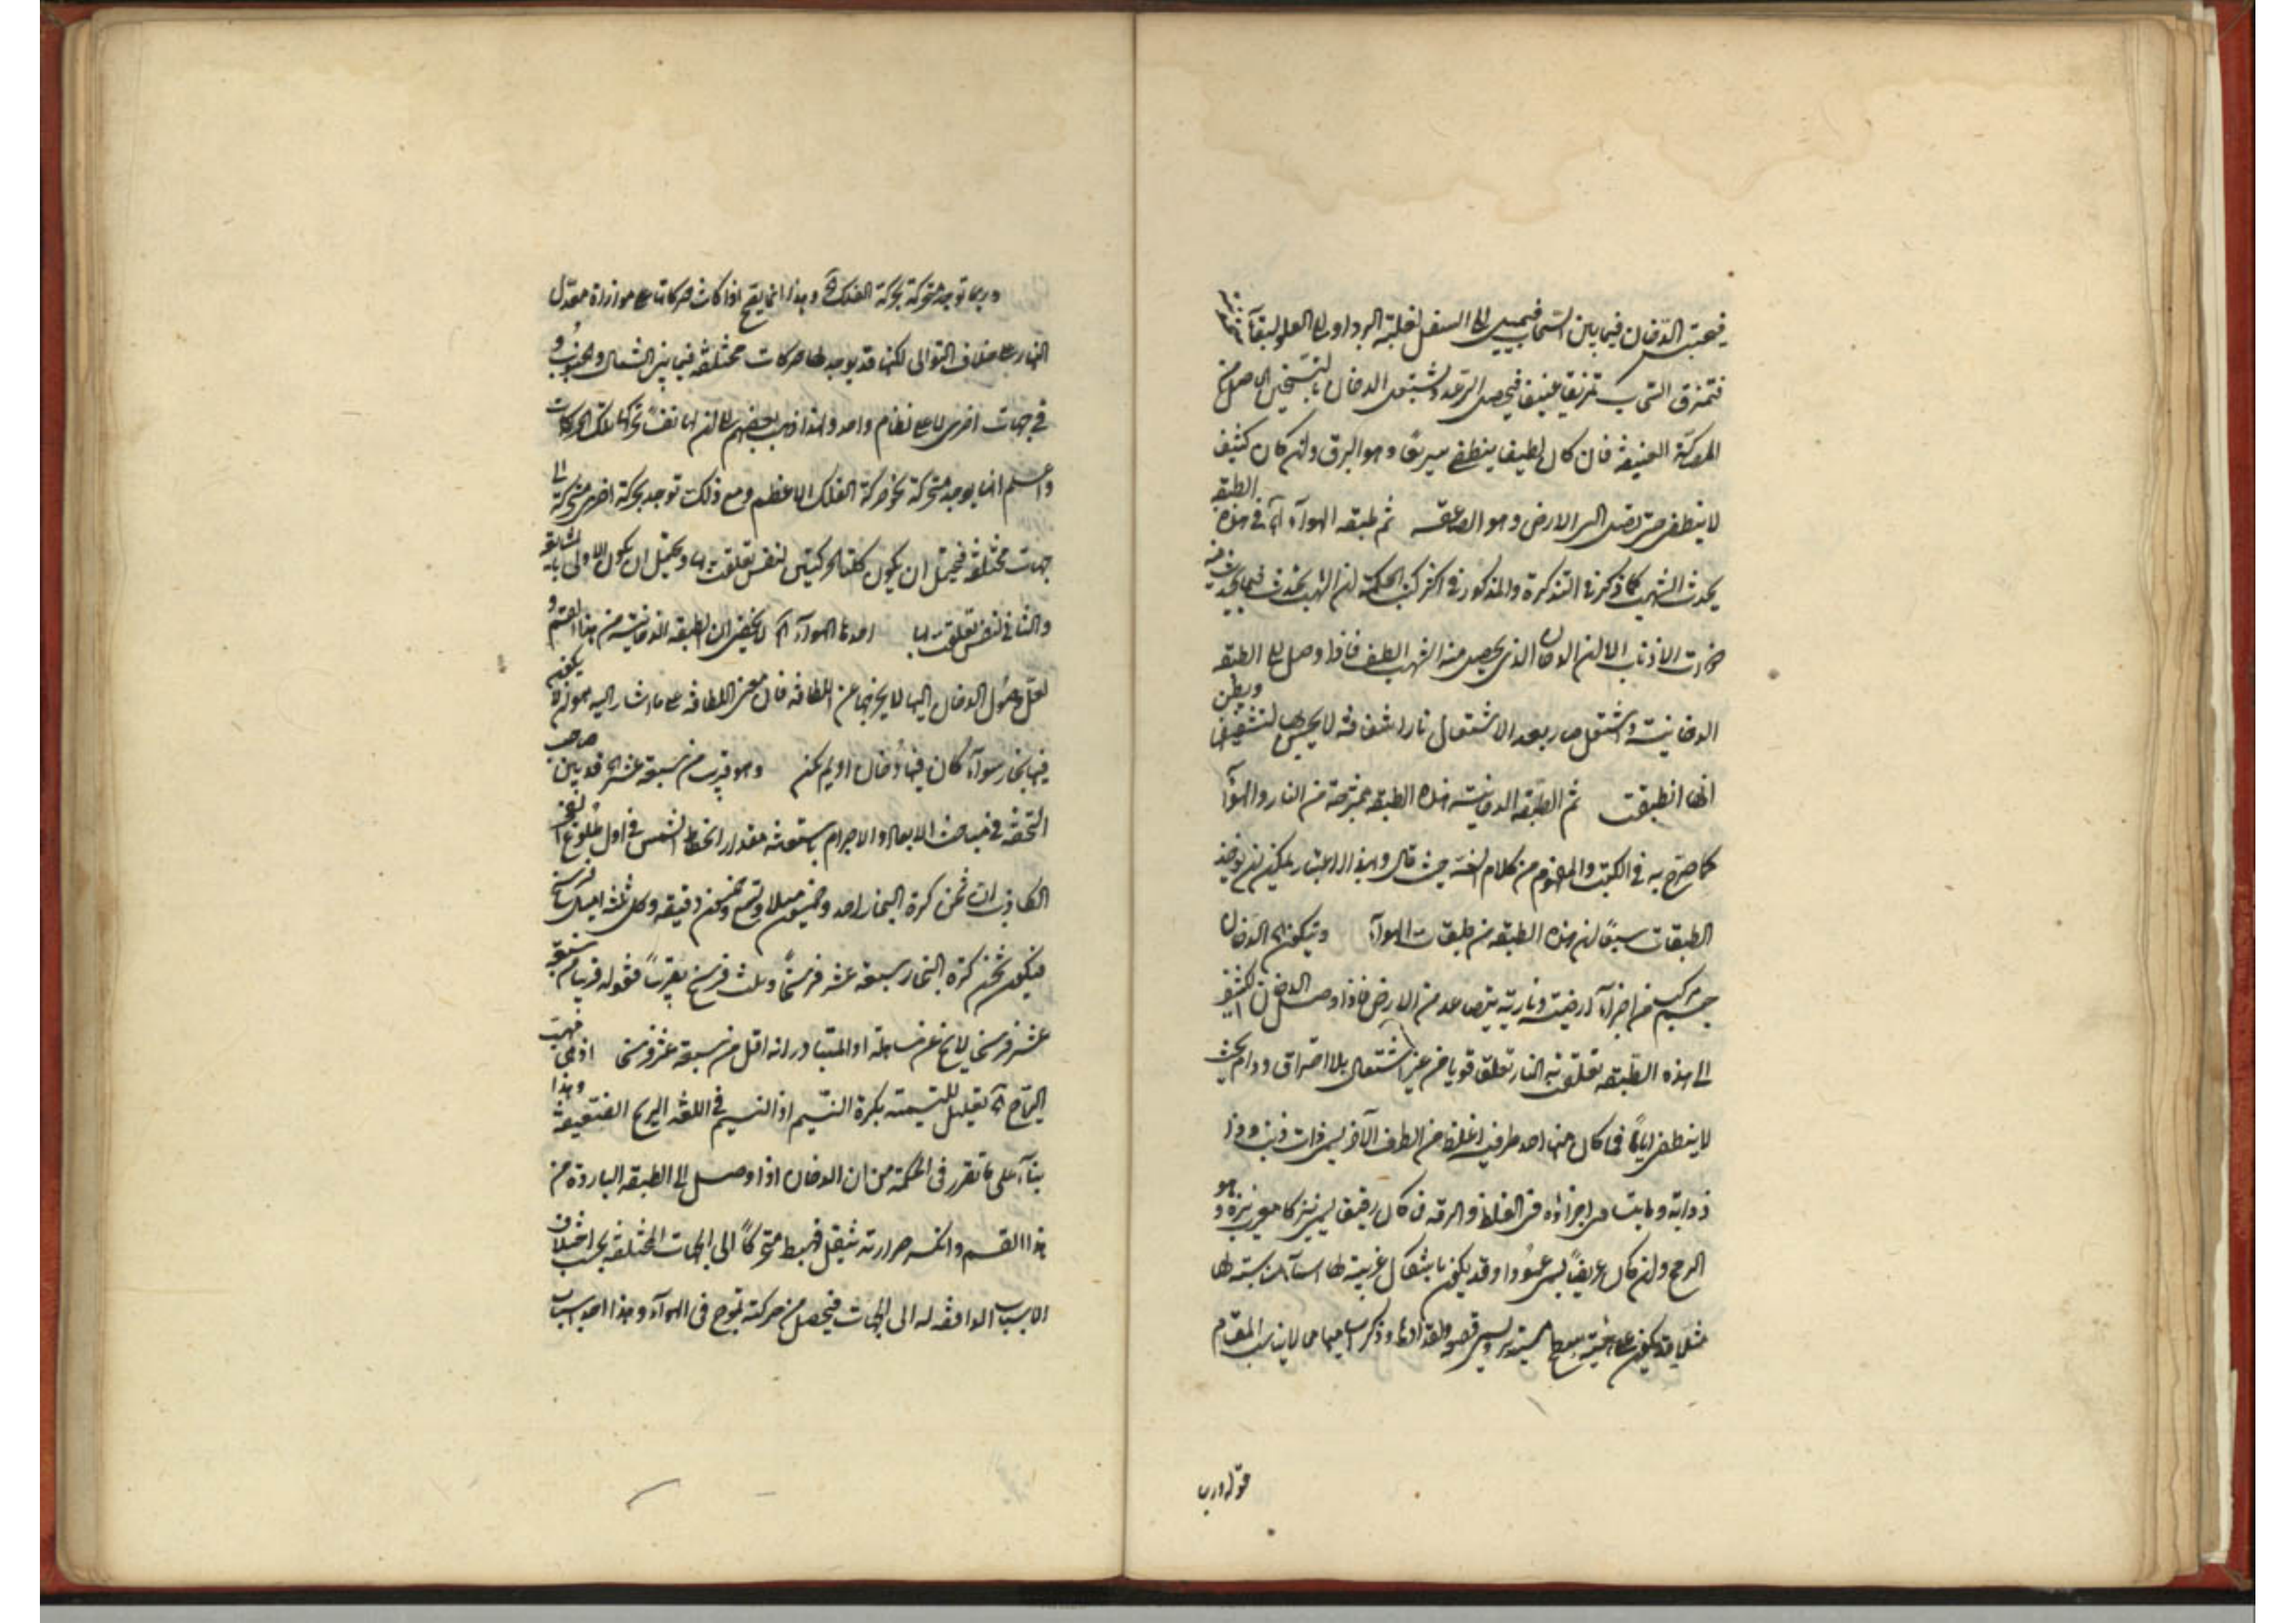 فيحتبس الدخان فيما بين السحاب فيميل الى السفل لغلبة البرد او الى العلو لبقآء
فتمزق السحاب تمزيقا عنيفا فيحصل الرعد ويشتعل الدخان بالتسخين الحاصل من
الحركة العنيفة فان كان لطيفا ينطفئ سريعًا وهو البرق وان كان كثيفا
لا ينطفئ حتى يصل الى الارض وهو الصاعقة ثم طبقة الهوآء آه في هذه الطبقة
يحدث الشهب كما ذكر في التذكرة والمذكور في اكثر كتب الحكمة ان الشهب تحدث فيما يحدث فيه
ذوات الاذناب الا ان الدخان الذي يحصل منه الشهب الطف فاذا وصل الى الطبقة
الدخانية واشتعل صار بعد الاشتعال نارا شفافة لا يحس بها لتشفيفها ويظن
انها انطفت ثم الطبقة الدخانية هذه الطبقة ممتزجة من النار والهوآء
كما صرح به في الكتب والمفهوم من كلام حيث قال وبهذا الاعتبار يمكن ان يؤخذ
الطبقات سبعًا ان هذه الطبقة من طبقات الهوآء ويتكون آه الدخان
جسم مركب من اجزآء ارضية ونارية يتصاعد من الارض فاذا وصل الدخان الكثيف
الى هذه الطبقة تعلقت به النار تعلقا قويا من غير اشتعال بل احتراق ودام بحيث
لا ينطفئ اياما فما كان منها احد طرفيه اغلظ من الطرف الآخر يسمى ذات ذنب وذا
ذوابة وما يتشابه اجزاؤه في الغلظ والرقة فان كان رقيقا يسمى نيزكا معرب نيزه وهو
الرمح وان كان عريضًا يسمى عمودا وقد يكون باشكال غريبة لها اسآء مناسبة لها
مثلا قد يكون على هيئة مستدير ويسمى قصعة ولقد ادها وذكر اساميها مما لا يناسب المقام
قوله وربما
وربما توجد متحركة بحركة الفلك آه وهذا انما يقع اذا كانت حركاتها على موازاة معدل
النهار على خلاف التوالى لكنها قد يوجد لها حركات مختلفة فيما بين الشمال والجنوب و
في جهات اخرى لا على نظام واحد ولهذا ذهب بعضهم الى ان لها نفسًا تحركها تلك الحركات
واعلم انها يوجد متحركة نحو حركة الفلك الاعظم ومع ذلك توجد بحركة اخرى متحركة الى
جهات مختلفة فيحتمل ان يكون كلتا الحركتين لنفس تعلقت بها ويحتمل ان يكون الاولى بالمشايعة
والثاني لنفس تعلقت بها احدها الهوآء آه لا يخفى ان الطبقة الدخانية من هذا القسم و
لعل وصول الدخان اليها لا يخرجها عن اللطافة فان معنى اللطافة على ما اشار اليه هو ان لا يكون
فيها بخار سوآء كان فيها دخان او لم يكن وهو قريب من سبعة عشر آه قد بين صاحب
التحفة في مباحث الابعاد والاجرام باستعانة مقدار انحطاط الشمس في اول طلوع الفجر
الكاذب ان ثخن كرة البخار احد وخمسون ميلا وتسع وخمسون دقيقة وكل ثلثة اميال فرسخ
فيكون ثخن كرة البخار سبعة عشر فرسخًا وثلث فرسخ تقريبًا فقوله قريب من سبعة
عشر فرسخا لا يخ عن مساهلة اذ المتبادر انه اقل من سبعة عشر فرسخا اذ هي مهب
الرياح آه تعليل للتسمية بكرة النسيم اذ النسيم في اللغة الريح الضعيفة وهذا
بنآء على ما تقرر في الحكمة من ان الدخان اذا وصل الى الطبقة الباردة من
هذا القسم وانكسر حرارته يثقل فيهبط متحركًا الى الجهات المختلفة بحسب اختلاف
الاسباب الدافعة له الى الجهات فيحصل من حركته تموج في الهوآء وهذا احد اسباب